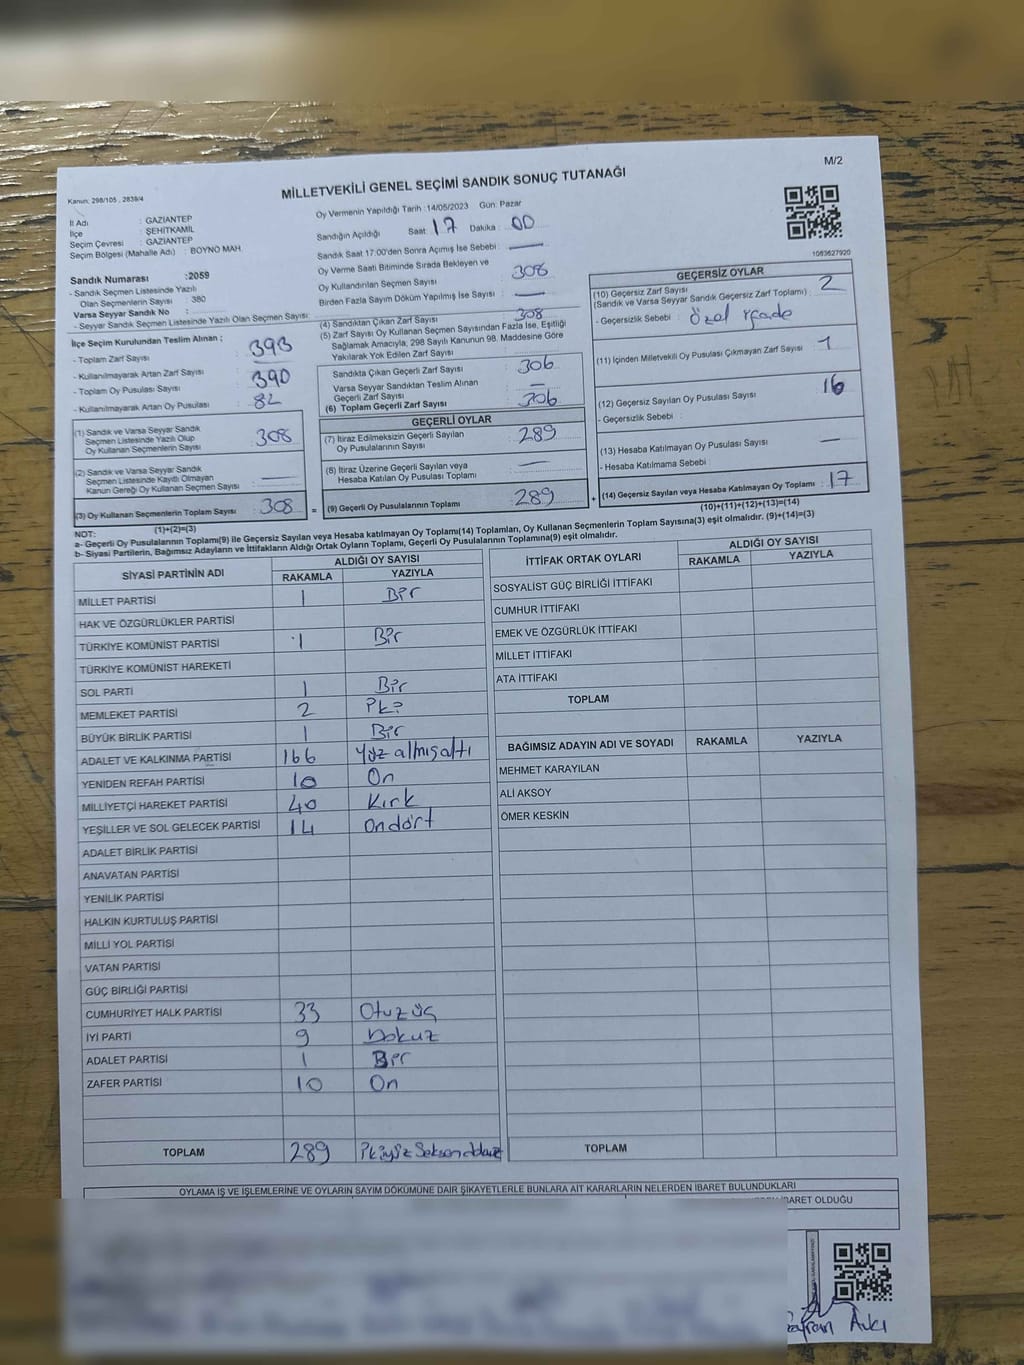 M/2
Kanun: 298/105 , 2839/4
MİLLETVEKİLİ GENEL SEÇİMİ SANDIK SONUÇ TUTANAĞI
İl Adı : GAZİANTEP
İlçe : ŞEHİTKAMİL
Seçim Çevresi : GAZİANTEP
Seçim Bölgesi (Mahalle Adı) : BOYNO MAH.
Sandık Numarası : 2059
- Sandık Seçmen Listesinde Yazılı
Olan Seçmenlerin Sayısı : 380
Varsa Seyyar Sandık No :
- Seyyar Sandık Seçmen Listesinde Yazılı Olan Seçmen Sayısı:
Oy Vermenin Yapıldığı Tarih : 14/05/2023 Gün: Pazar
Sandığın Açıldığı Saat: 17 Dakika : 00
Sandık Saat 17:00'den Sonra Açımış İse Sebebi : —
Oy Verme Saati Bitiminde Sırada Bekleyen ve
Oy Kullandırılan Seçmen Sayısı : 308
Birden Fazla Sayım Döküm Yapılmış İse Sayısı : —
1083627920
İlçe Seçim Kurulundan Teslim Alınan ;
- Toplam Zarf Sayısı : 393
- Kullanılmayarak Artan Zarf Sayısı : —
- Toplam Oy Pusulası Sayısı : 390
- Kullanılmayarak Artan Oy Pusulası : 82
(1) Sandık ve Varsa Seyyar Sandık
Seçmen Listesinde Yazılı Olup
Oy Kullanan Seçmenlerin Sayısı : 308
(2) Sandık ve Varsa Seyyar Sandık
Seçmen Listesinde Kayıtlı Olmayan
Kanun Gereği Oy Kullanan Seçmen Sayısı : —
(3) Oy Kullanan Seçmenlerin Toplam Sayısı : 308 =
(1)+(2)=(3)
(4) Sandıktan Çıkan Zarf Sayısı : 308
(5) Zarf Sayısı Oy Kullanan Seçmen Sayısından Fazla İse, Eşitliği
Sağlamak Amacıyla, 298 Sayılı Kanunun 98. Maddesine Göre
Yakılarak Yok Edilen Zarf Sayısı :
Sandıkta Çıkan Geçerli Zarf Sayısı : 306
Varsa Seyyar Sandıktan Teslim Alınan
Geçerli Zarf Sayısı : —
(6) Toplam Geçerli Zarf Sayısı : 306
GEÇERLİ OYLAR
(7) İtiraz Edilmeksizin Geçerli Sayılan
Oy Pusulalarının Sayısı : 289
(8) İtiraz Üzerine Geçerli Sayılan veya
Hesaba Katılan Oy Pusulası Toplamı : —
(9) Geçerli Oy Pusulalarının Toplamı : 289 +
GEÇERSİZ OYLAR
(10) Geçersiz Zarf Sayısı : 2
(Sandık ve Varsa Seyyar Sandık Geçersiz Zarf Toplamı)
- Geçersizlik Sebebi : özel ifade
(11) İçinden Milletvekili Oy Pusulası Çıkmayan Zarf Sayısı : 1
(12) Geçersiz Sayılan Oy Pusulası Sayısı : 16
- Geçersizlik Sebebi :
(13) Hesaba Katılmayan Oy Pusulası Sayısı : —
- Hesaba Katılmama Sebebi :
(14) Geçersiz Sayılan veya Hesaba Katılmayan Oy Toplamı : 17
(10)+(11)+(12)+(13)=(14)
NOT:
a- Geçerli Oy Pusulalarının Toplamı(9) ile Geçersiz Sayılan veya Hesaba katılmayan Oy Toplamı(14) Toplamları, Oy Kullanan Seçmenlerin Toplam Sayısına(3) eşit olmalıdır. (9)+(14)=(3)
b- Siyasi Partilerin, Bağımsız Adayların ve İttifakların Aldığı Ortak Oyların Toplamı, Geçerli Oy Pusulalarının Toplamına(9) eşit olmalıdır.
SİYASİ PARTİNİN ADI ALDIĞI OY SAYISI
RAKAMLA YAZIYLA
MİLLET PARTİSİ 1 Bir
HAK VE ÖZGÜRLÜKLER PARTİSİ
TÜRKİYE KOMÜNİST PARTİSİ 1 Bir
TÜRKİYE KOMÜNİST HAREKETİ
SOL PARTİ 1 Bir
MEMLEKET PARTİSİ 2 İki
BÜYÜK BİRLİK PARTİSİ 1 Bir
ADALET VE KALKINMA PARTİSİ 166 Yüz altmışaltı
YENİDEN REFAH PARTİSİ 10 On
MİLLİYETÇİ HAREKET PARTİSİ 40 Kırk
YEŞİLLER VE SOL GELECEK PARTİSİ 14 Ondört
ADALET BİRLİK PARTİSİ
ANAVATAN PARTİSİ
YENİLİK PARTİSİ
HALKIN KURTULUŞ PARTİSİ
MİLLİ YOL PARTİSİ
VATAN PARTİSİ
GÜÇ BİRLİĞİ PARTİSİ
CUMHURİYET HALK PARTİSİ 33 Otuz üç
İYİ PARTİ 9 Dokuz
ADALET PARTİSİ 1 Bir
ZAFER PARTİSİ 10 On
TOPLAM 289 İkiyüz Seksendokuz
İTTİFAK ORTAK OYLARI ALDIĞI OY SAYISI
RAKAMLA YAZIYLA
SOSYALİST GÜÇ BİRLİĞİ İTTİFAKI
CUMHUR İTTİFAKI
EMEK VE ÖZGÜRLÜK İTTİFAKI
MİLLET İTTİFAKI
ATA İTTİFAKI
TOPLAM
BAĞIMSIZ ADAYIN ADI VE SOYADI RAKAMLA YAZIYLA
MEHMET KARAYILAN
ALİ AKSOY
ÖMER KESKİN
TOPLAM
OYLAMA İŞ VE İŞLEMLERİNE VE OYLARIN SAYIM DÖKÜMÜNE DAİR ŞİKAYETLERLE BUNLARA AİT KARARLARIN NELERDEN İBARET BULUNDUKLARI
İBARET OLDUĞU